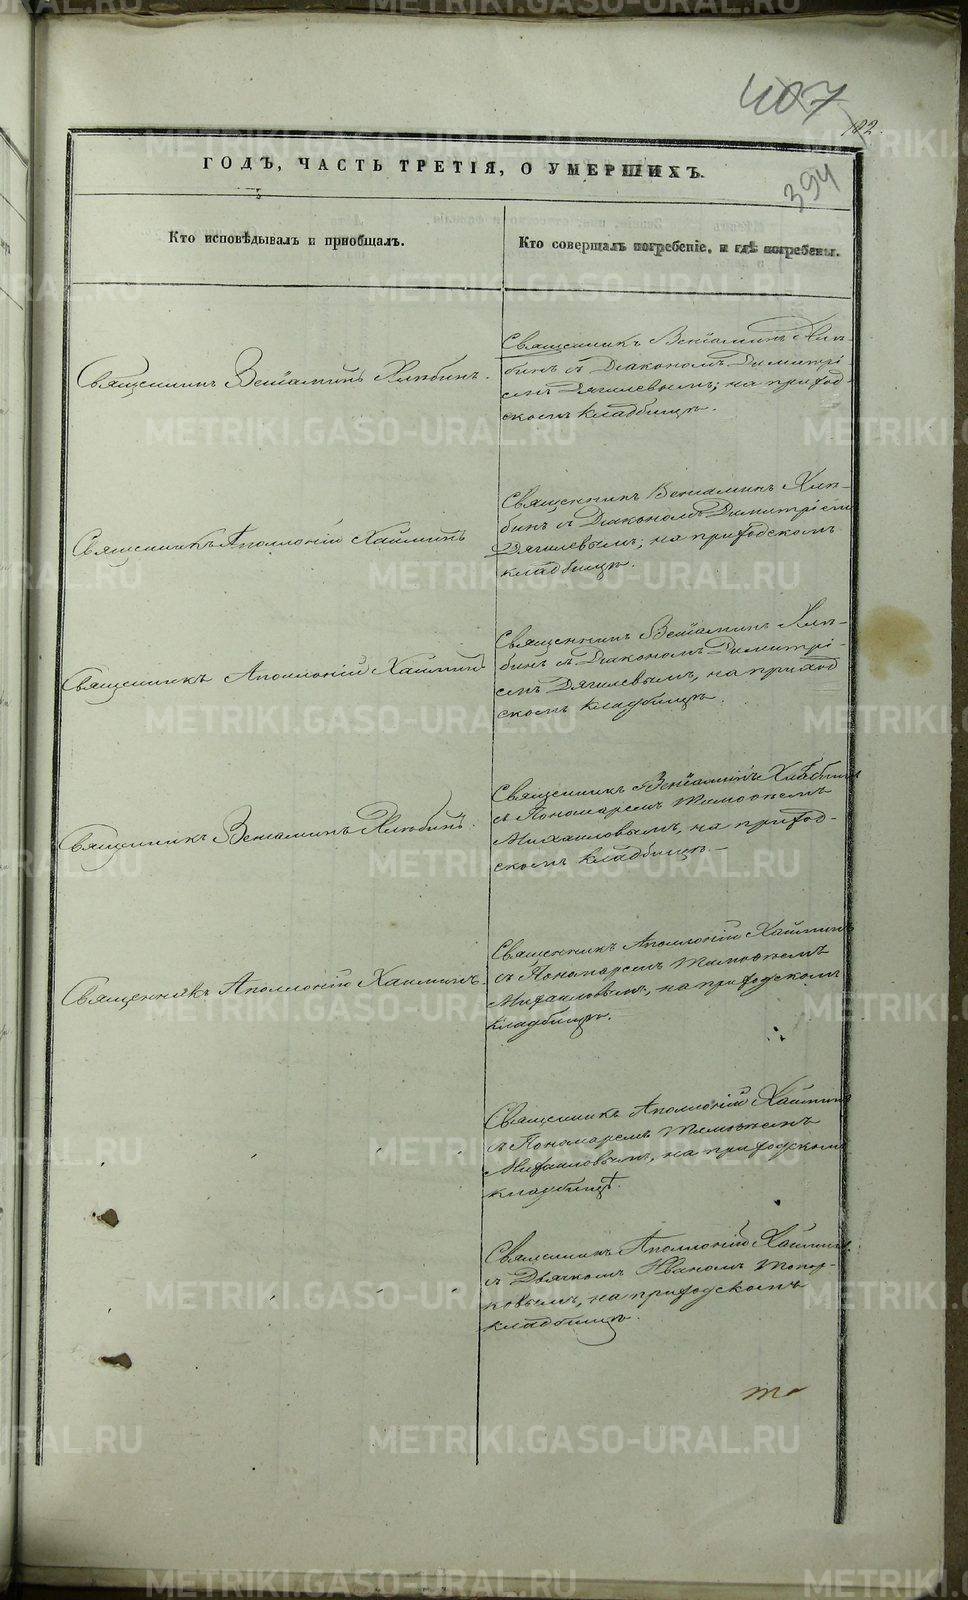 407
182.
ГОДЪ, ЧАСТЬ ТРЕТІЯ, О УМЕРШИХЪ.
394
Кто исповѣдывалъ и пріобщалъ.
Кто совершалъ погребеніе, и гдѣ погребены.
Священникъ Веніаминъ Хлѣбинъ.
Священникъ Веніаминъ Хлѣ-
бинъ съ Діакономъ Димитрі-
емъ Дягилевымъ; на приход-
скомъ кладбищѣ.
Священникъ Аполлоній Хайминъ
Священникъ Веніаминъ Хлѣ-
бинъ съ Діакономъ Димитріемъ
Дягилевымъ; на приходскомъ
кладбищѣ.
Священникъ Аполлоній Хайминъ
Священникъ Веніаминъ Хлѣ-
бинъ съ Діакономъ Димитрі-
емъ Дягилевымъ, на приход
скомъ кладбищѣ.
Священникъ Веніаминъ Хлѣбинъ.
Священникъ Веніаминъ Хлѣбинъ
съ Пономаремъ
Михаиловымъ, на приход-
скомъ кладбищѣ.—
Священникъ Аполлоній Хайминъ.
Священникъ Аполлоній Хайминъ
съ Пономаремъ
Михаиловымъ, на приходскомъ
кладбищѣ.
Священникъ Аполлоній Хайминъ
съ Пономаремъ
Михаиловымъ, на приходскомъ
кладбищѣ.
Священникъ Аполлоній Хайминъ
съ Дьячкомъ Иваномъ Топор-
ковымъ, на приходскомъ
кладбищѣ.
METRIKI.GASO-URAL.RU